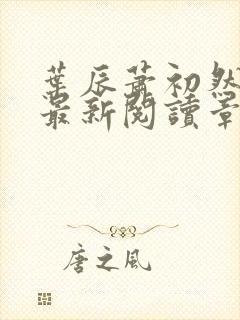 葉辰蕭初然
最新閱讀章
唐之風